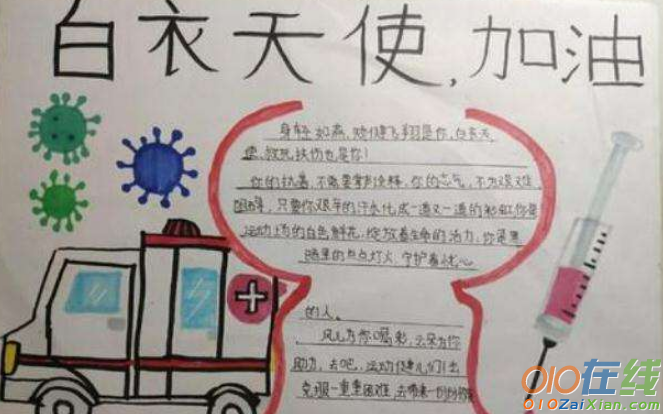 白衣天使,加油
身轻如燕,矫健飞翔是你,白衣天
使,救死扶伤也是你!
你的执着,不需要掌声诠释,你的志气,不为艰难
阻碍,只要你艰辛的汗水化成一道又一道的彩虹,你是
运动上的白色鲜花,绽放着生命的活力,你是黑
暗里的点点灯火,守护着忧心
的人。
风儿为你喝彩,云朵为你
助力,去吧,运动健儿们!去
克服一重重困难,去带来一份份
010在线
010ZaiXian.com